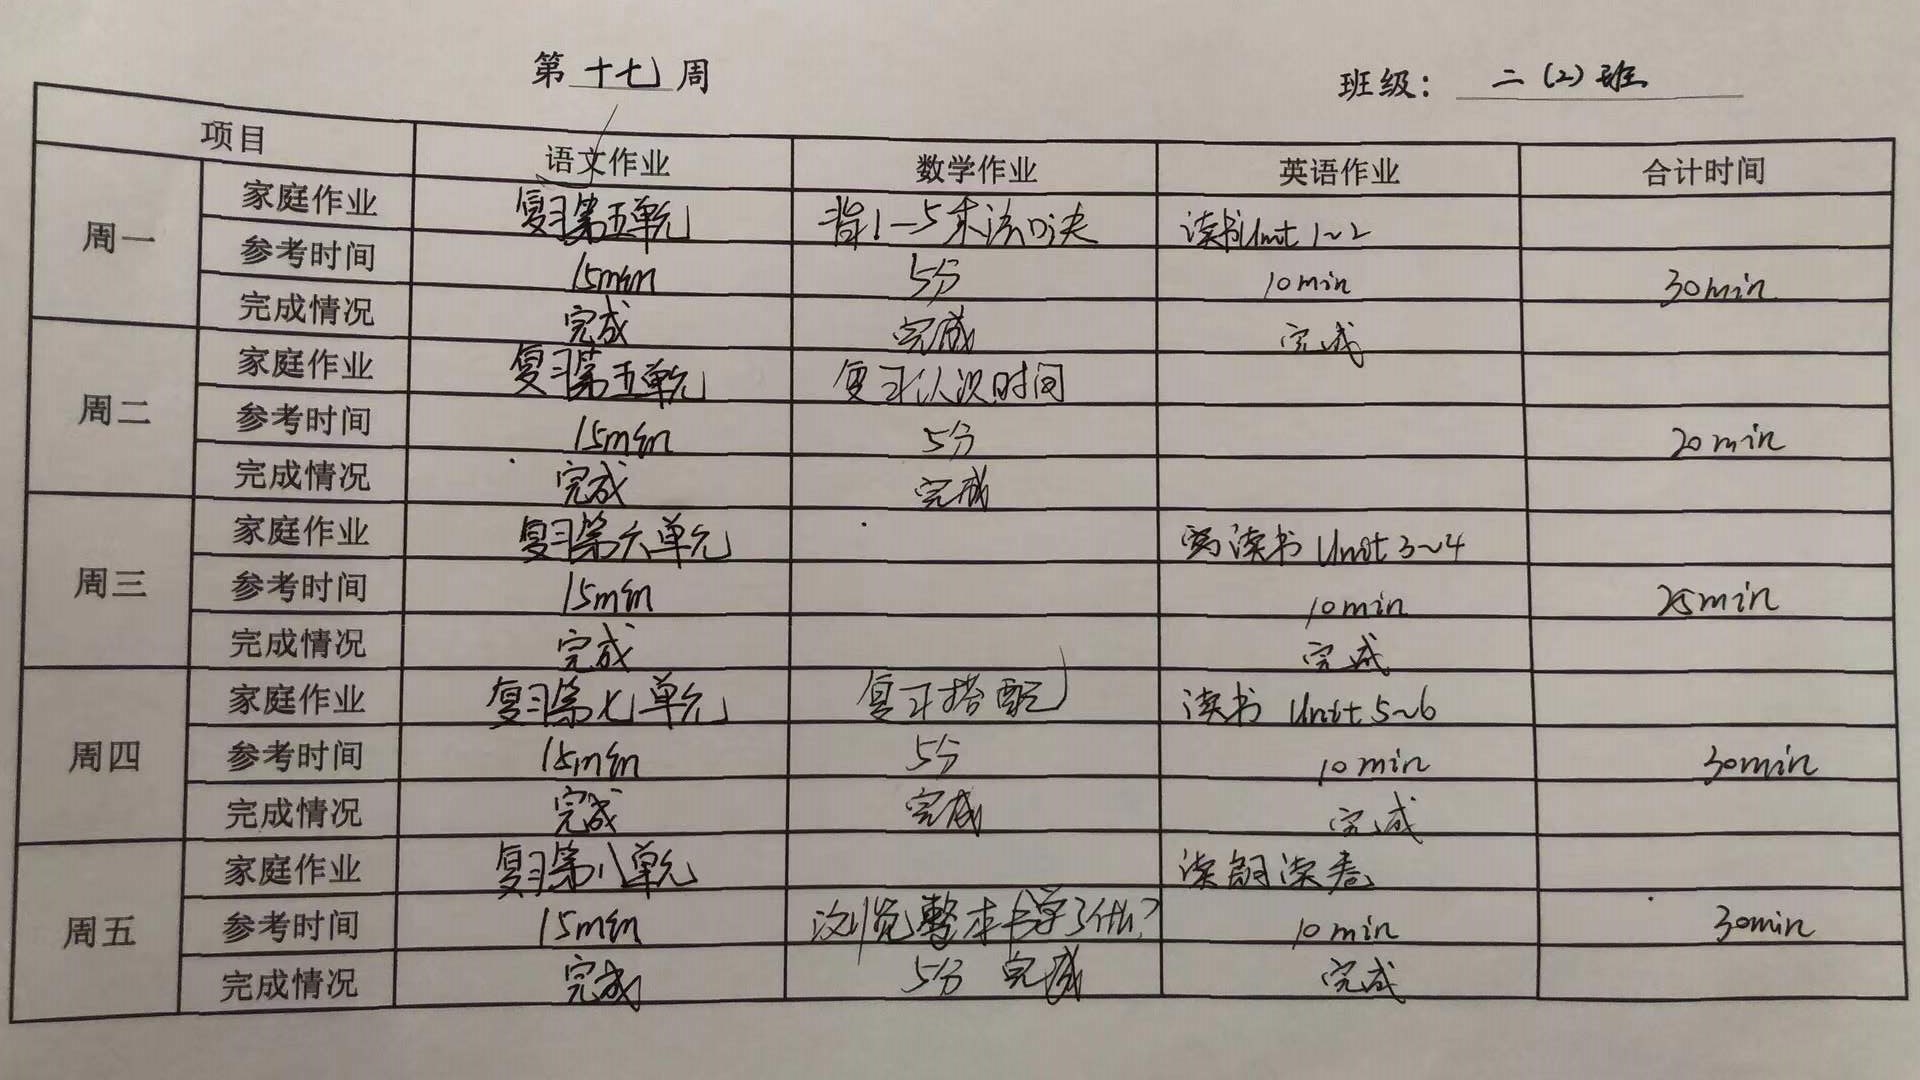 第 十七 周 班级： 二（2）班
项目 语文作业 数学作业 英语作业 合计时间
周一
家庭作业 复习第五单元 背1—5乘法口决 读书Unit 1~2
参考时间 15min 5分 10min 30min
完成情况 完成 完成 完成
周二
家庭作业 复习第五单元 复习认识时间
参考时间 15min 5分 20min
完成情况 完成 完成
周三
家庭作业 复习第六单元 读书 Unit 3~4
参考时间 15min 10min 25min
完成情况 完成 完成
周四
家庭作业 复习第七单元 复习搭配 读书 Unit 5~6
参考时间 15min 5分 10min 30min
完成情况 完成 完成 完成
周五
家庭作业 复习第八单元
参考时间 15min 浏览整本书学了什么？ 10min 30min
完成情况 完成 5分 完成 完成